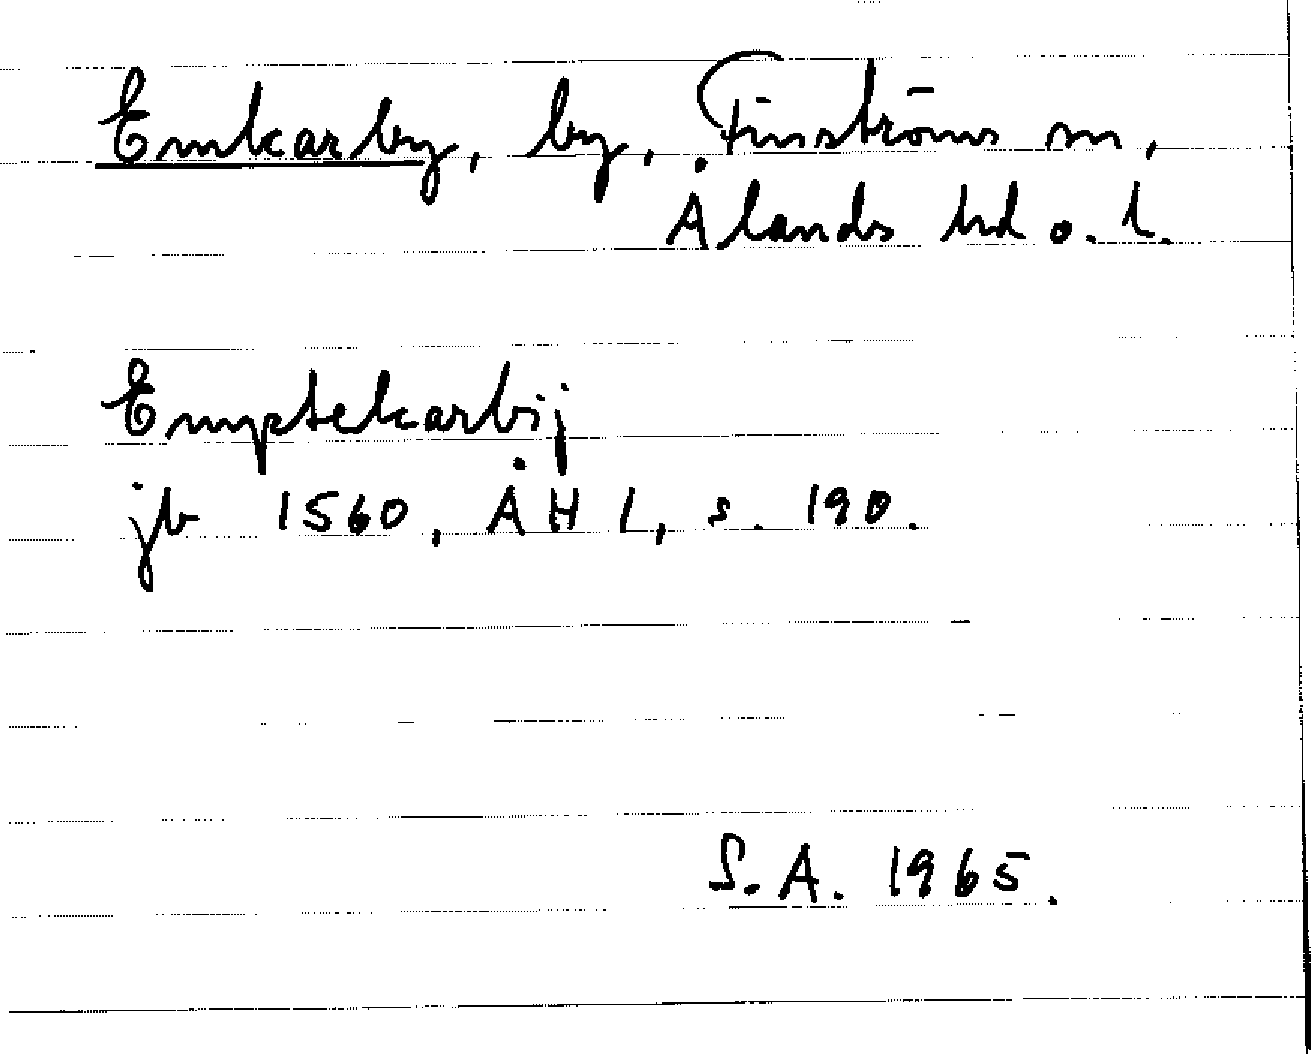 Emkarby, by, Finströms sn,
Ålands hd o. l.
Emptekarbij
jb 1560, ÅHL, s. 190.
S.A. 1965.